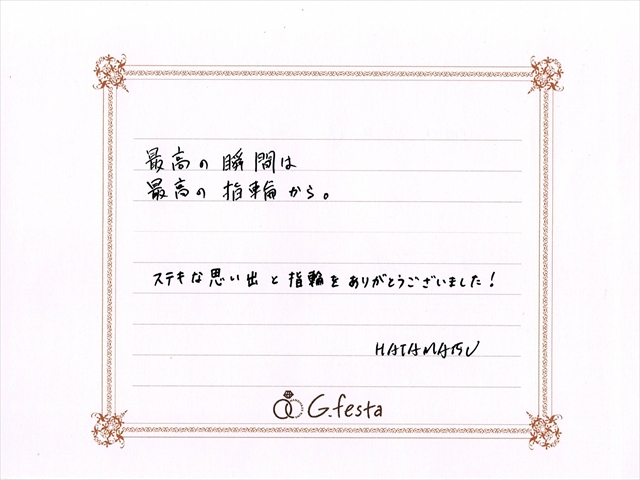 最高の瞬間は
最高の指輪から。
ステキな思い出と指輪をありがとうございました！
HATAMATSU
G.festa